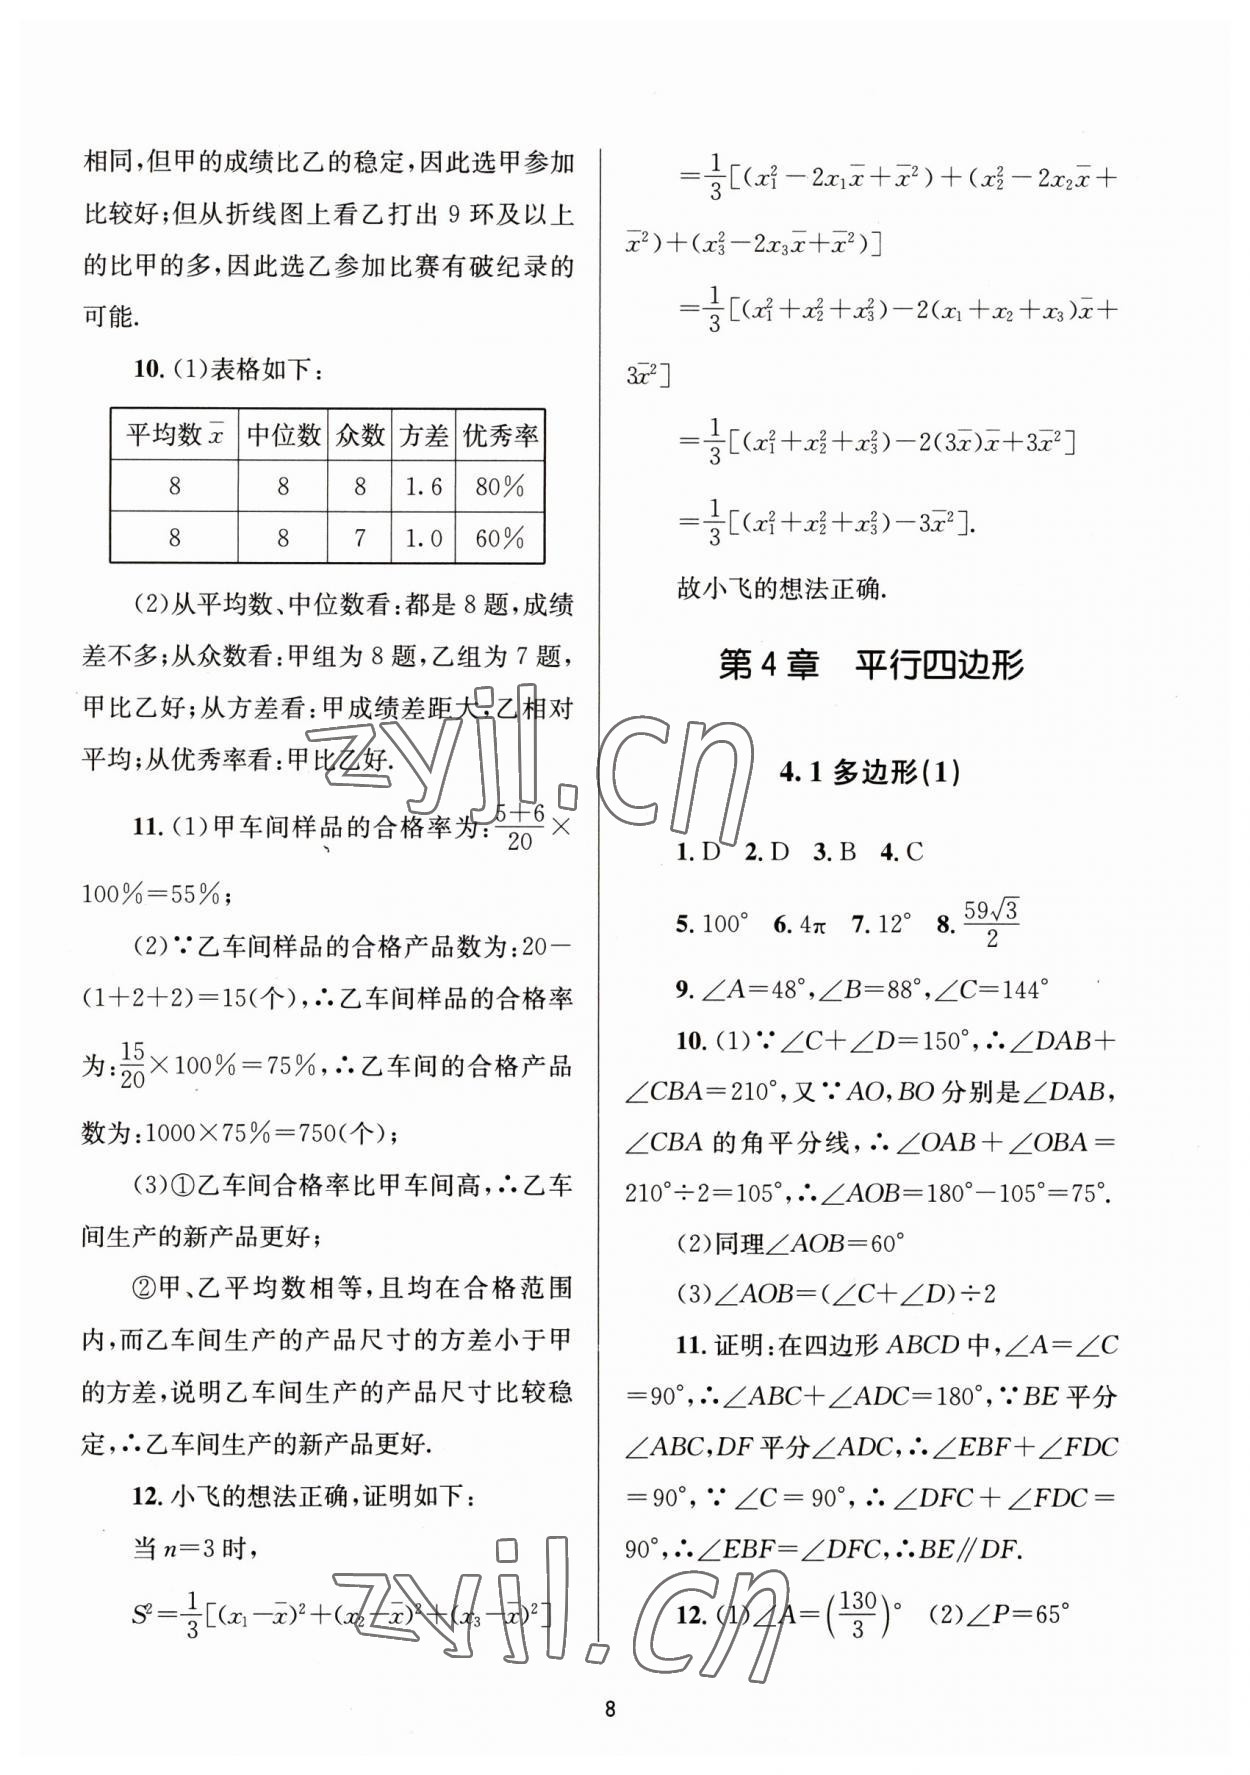 相同,但甲的成绩比乙的稳定,因此选甲参加
比较好;但从折线图上看乙打出 9 环及以上
的比甲的多,因此选乙参加比赛有破纪录的
可能.
10. (1)表格如下:
平均数 x̄ 中位数 众数 方差 优秀率
8 8 8 1.6 80%
8 8 7 1.0 60%
(2)从平均数、中位数看:都是 8 题,成绩
差不多;从众数看:甲组为 8 题,乙组为 7 题,
甲比乙好;从方差看:甲成绩差距大,乙相对
平均;从优秀率看:甲比乙好.
11. (1)甲车间样品的合格率为:(5+6)/20×
100%=55%;
(2)∵乙车间样品的合格产品数为:20−
(1+2+2)=15(个),∴乙车间样品的合格率
为:15/20×100%=75%,∴乙车间的合格产品
数为:1000×75%=750(个);
(3)①乙车间合格率比甲车间高,∴乙车
间生产的新产品更好;
②甲、乙平均数相等,且均在合格范围
内,而乙车间生产的产品尺寸的方差小于甲
的方差,说明乙车间生产的产品尺寸比较稳
定,∴乙车间生产的新产品更好.
12. 小飞的想法正确,证明如下:
当 n=3 时,
S²=1/3[(x₁−x̄)²+(x₂−x̄)²+(x₃−x̄)²]
=1/3[(x₁²−2x₁x̄+x̄²)+(x₂²−2x₂x̄+
x̄²)+(x₃²−2x₃x̄+x̄²)]
=1/3[(x₁²+x₂²+x₃²)−2(x₁+x₂+x₃)x̄+
3x̄²]
=1/3[(x₁²+x₂²+x₃²)−2(3x̄)x̄+3x̄²]
=1/3[(x₁²+x₂²+x₃²)−3x̄²].
故小飞的想法正确.
第 4 章 平行四边形
4.1 多边形(1)
1. D 2. D 3. B 4. C
5. 100° 6. 4π 7. 12° 8. 59√3/2
9. ∠A=48°,∠B=88°,∠C=144°
10. (1)∵∠C+∠D=150°,∴∠DAB+
∠CBA=210°,又∵AO,BO 分别是∠DAB,
∠CBA 的角平分线,∴∠OAB+∠OBA=
210°÷2=105°,∴∠AOB=180°−105°=75°.
(2)同理∠AOB=60°
(3)∠AOB=(∠C+∠D)÷2
11. 证明:在四边形 ABCD 中,∠A=∠C
=90°,∴∠ABC+∠ADC=180°,∵BE 平分
∠ABC,DF 平分∠ADC,∴∠EBF+∠FDC
=90°,∵∠C=90°,∴∠DFC+∠FDC=
90°,∴∠EBF=∠DFC,∴BE∥DF.
12. (1)∠A=(130/3)° (2)∠P=65°
8
zyjl.cn
zyjl.cn